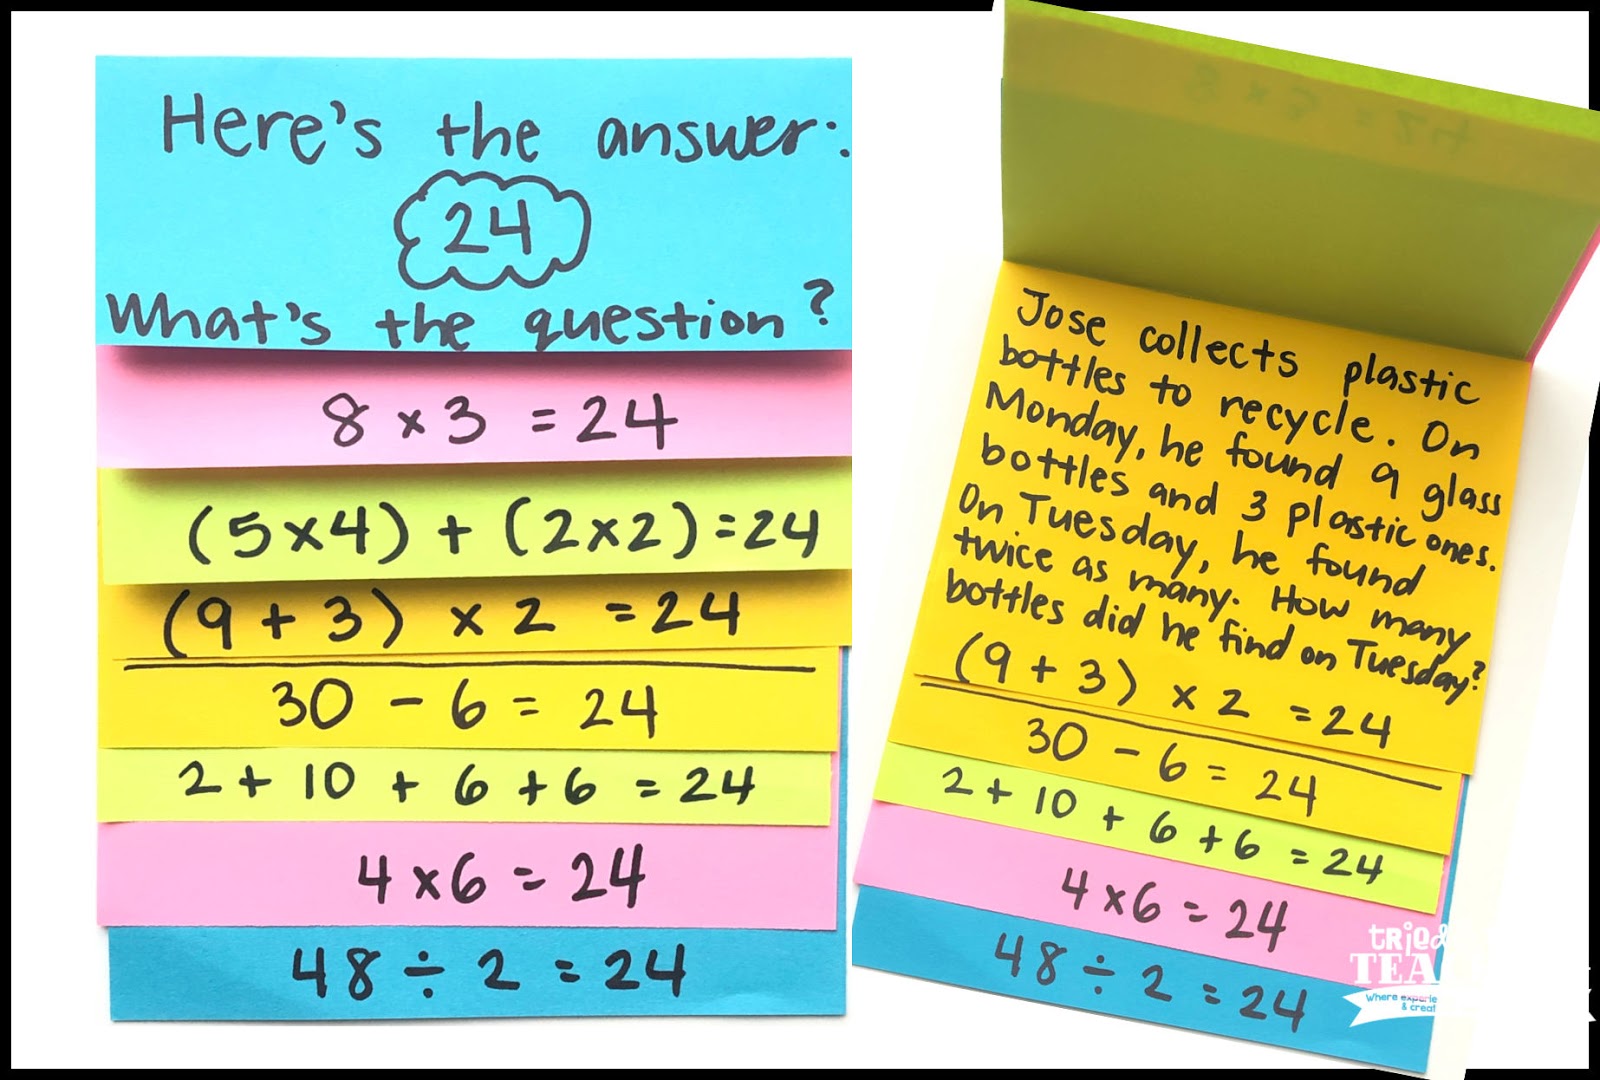 Here's the answer:
24
What's the question?
8 x 3 = 24
(5x4) + (2x2) = 24
(9 + 3) x 2 = 24
30 - 6 = 24
2 + 10 + 6 + 6 = 24
4 x 6 = 24
48 ÷ 2 = 24
Jose collects plastic
bottles to recycle. On
Monday, he found 9 glass
bottles and 3 plastic ones.
On Tuesday, he found
twice as many. How many
bottles did he find on Tuesday?
(9 + 3) x 2 = 24
30 - 6 = 24
2 + 10 + 6 + 6 = 24
4 x 6 = 24
48 ÷ 2 = 24
tried
Where
&